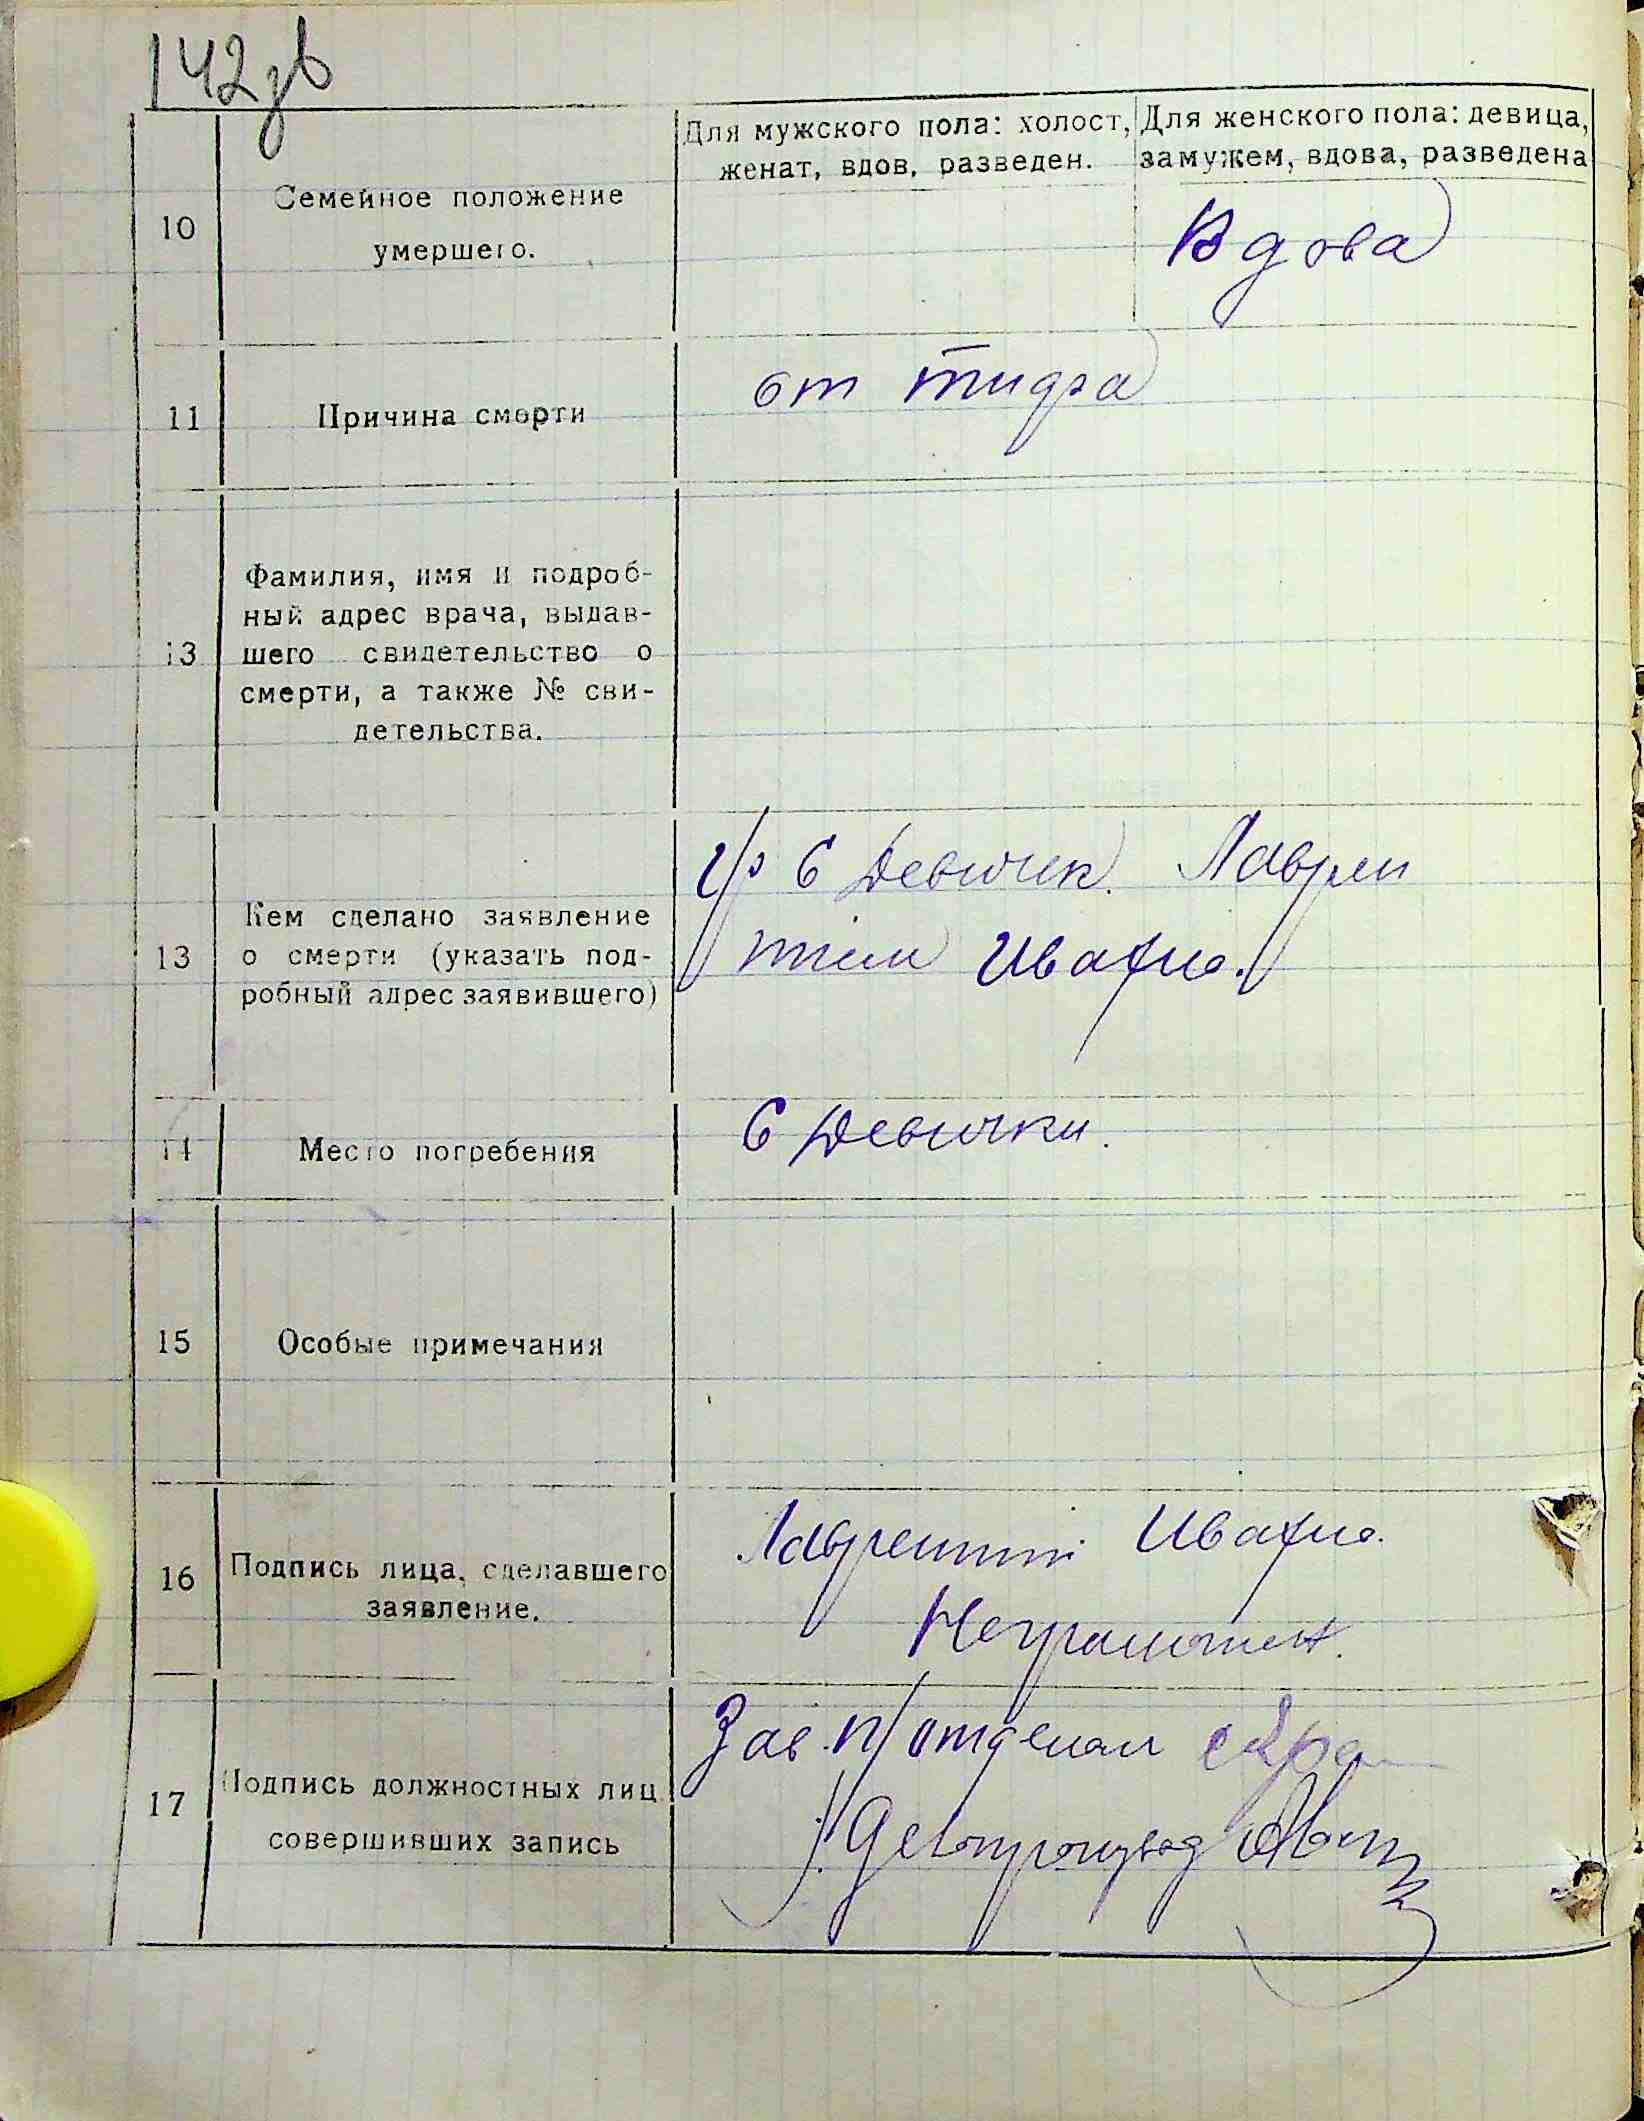 142зв
Для мужского пола: холост,
женат, вдов, разведен.
Для женского пола: девица,
замужем, вдова, разведена
10
Семейное положение
умершего.
Вдова
11
Причина смерти
от тифа
13
Фамилия, имя и подроб-
ный адрес врача, выдав-
шего свидетельство о
смерти, а также № сви-
детельства.
13
Кем сделано заявление
о смерти (указать под-
робный адрес заявившего)
гр С Девичек. Лаврен
тием Ивахно.
14
Место погребения
С Девички.
15
Особые примечания
16
Подпись лица, сделавшего
заявление.
Лаврентий Ивахно.
Неграмотен.
17
Подпись должностных лиц
совершивших запись
Зав. п/отделом
Делопроизвод